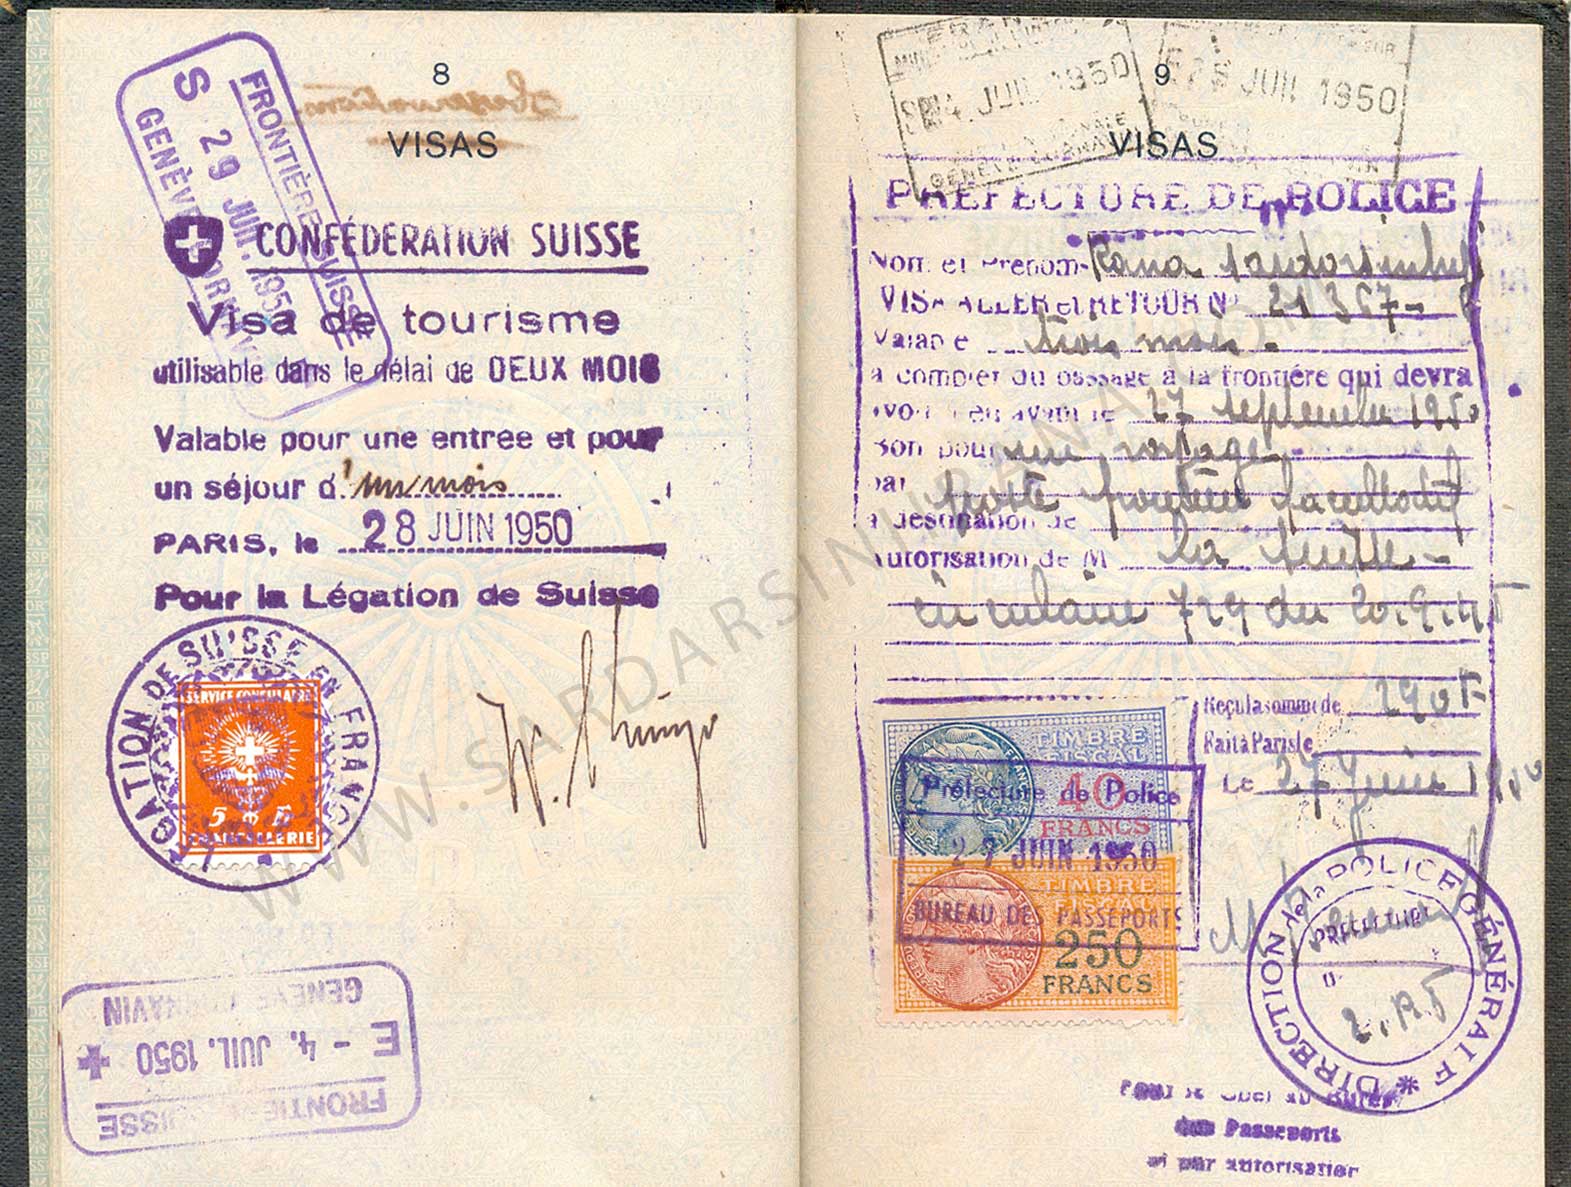 8
VISAS
FRONTIÈRE SUISSE
S 29 JUI. 1950
GENÈVE CORNAVIN
CONFÉDÉRATION SUISSE
Visa de tourisme
utilisable dans le délai de DEUX MOIS
Valable pour une entrée et pour
un séjour d'un mois
PARIS, le 28 JUIN 1950
Pour la Légation de Suisse
LÉGATION DE SUISSE EN FRANCE
SERVICE CONSULAIRE
5 5
CHANCELLERIE
FRONTIÈRE SUISSE
E - 4. JUIL. 1950
GENÈVE CORNAVIN
WWW.SARDARSINHRANA.COM
9
VISAS
4. JUIL 1950
GENÈVE CORNAVIN
JUIL 1950
PREFECTURE DE POLICE
Nom et Prénom Rana
VISA ALLER et RETOUR N° 21367
Valable trois mois
à compter du passage à la frontière qui devra
avoir lieu avant le 27 septembre 1950
Bon pour un voyage
par
à destination de
Autorisation de M la suite
circulaire 729 du 20.9.45
Reçu la somme de 290F
Fait à Paris le
Le 27 Juin 1950
TIMBRE
FISCAL
40
FRANCS
Préfecture de Police
27 JUIN 1950
BUREAU DES PASSEPORTS
TIMBRE
FISCAL
250
FRANCS
DIRECTION de la POLICE GÉNÉRALE
PREFECTURE
Pour le Chef du Bureau
des Passeports
et par autorisation